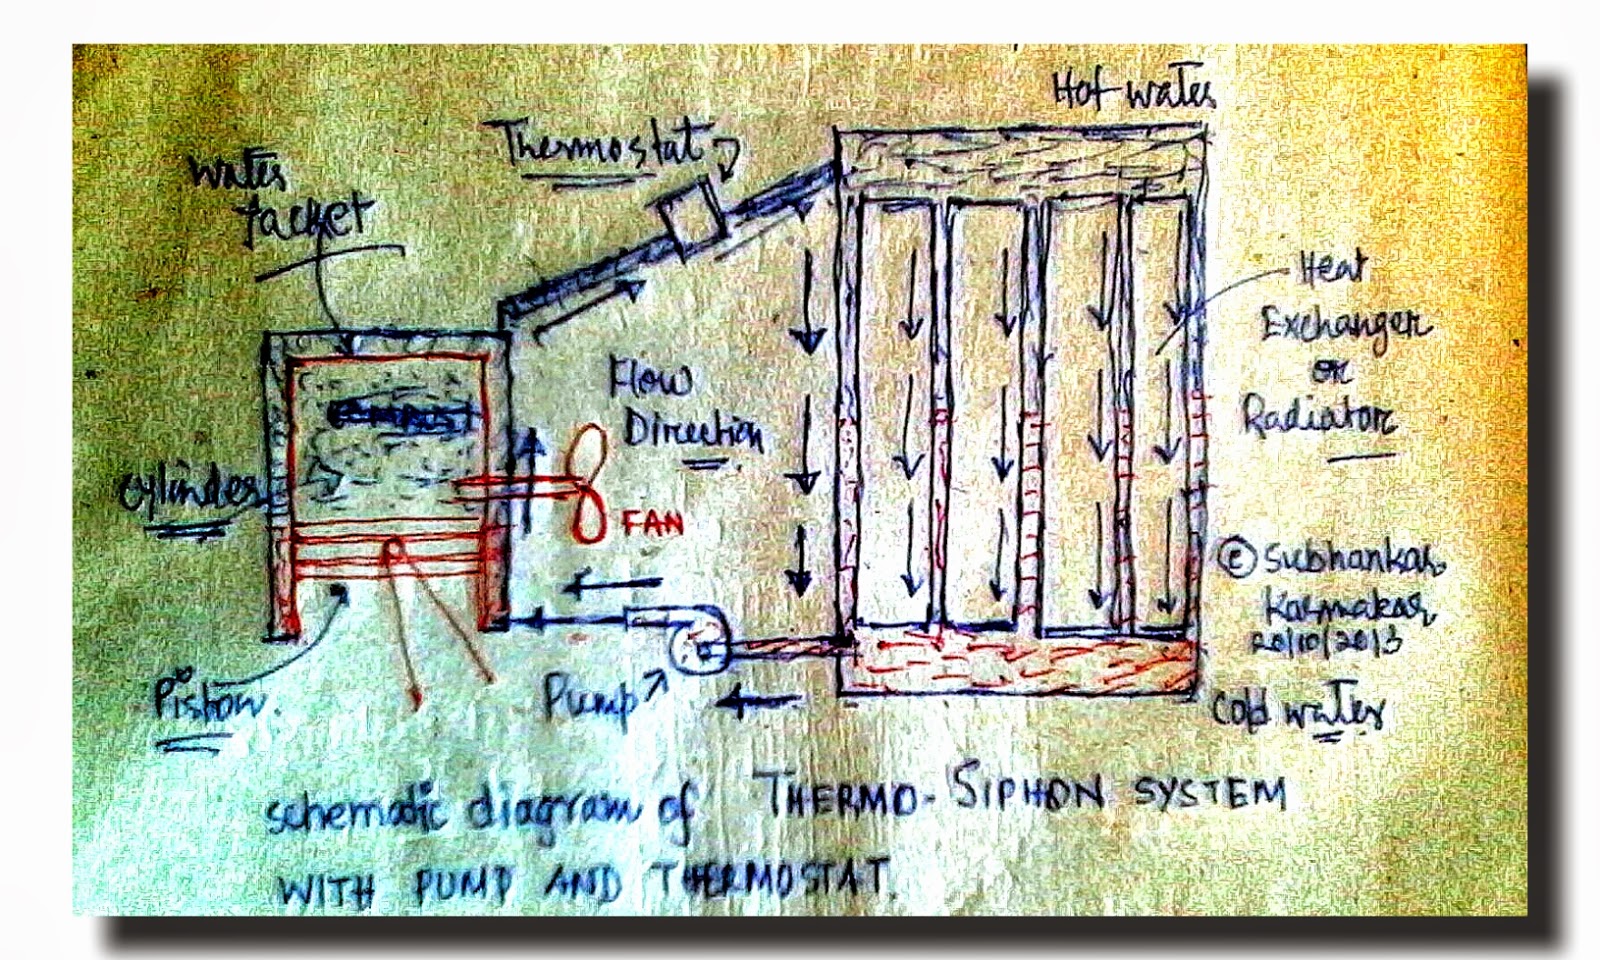 Hot water
Thermostat
Water
Jacket
Heat
Exchanger
or
Radiator
Flow
Direction
Cylinder
FAN
© Subhankar
Karmakar
20/10/2013
Piston.
Pump
Cold water
schematic diagram of THERMO-SIPHON SYSTEM
WITH PUMP AND THERMOSTAT.